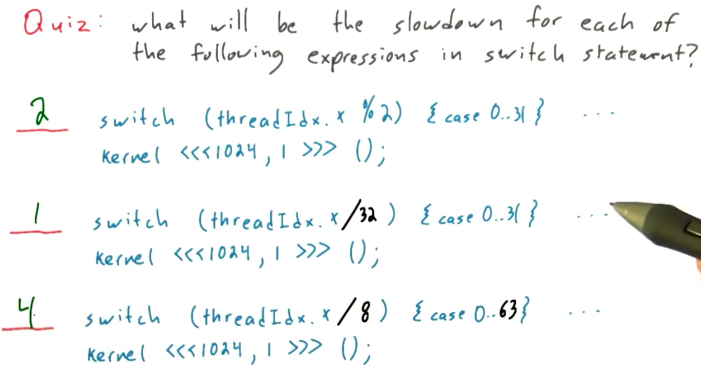 Quiz: what will be the slowdown for each of
the following expressions in switch statement?
2 switch (threadIdx.x %2) { case 0..31 } ...
Kernel <<<1024, 1 >>> ();
1 switch (threadIdx.x /32 ) { case 0..31 } ...
Kernel <<<1024, 1 >>> ();
4 switch (threadIdx.x /8 ) { case 0..63} ...
Kernel <<<1024, 1 >>> ();